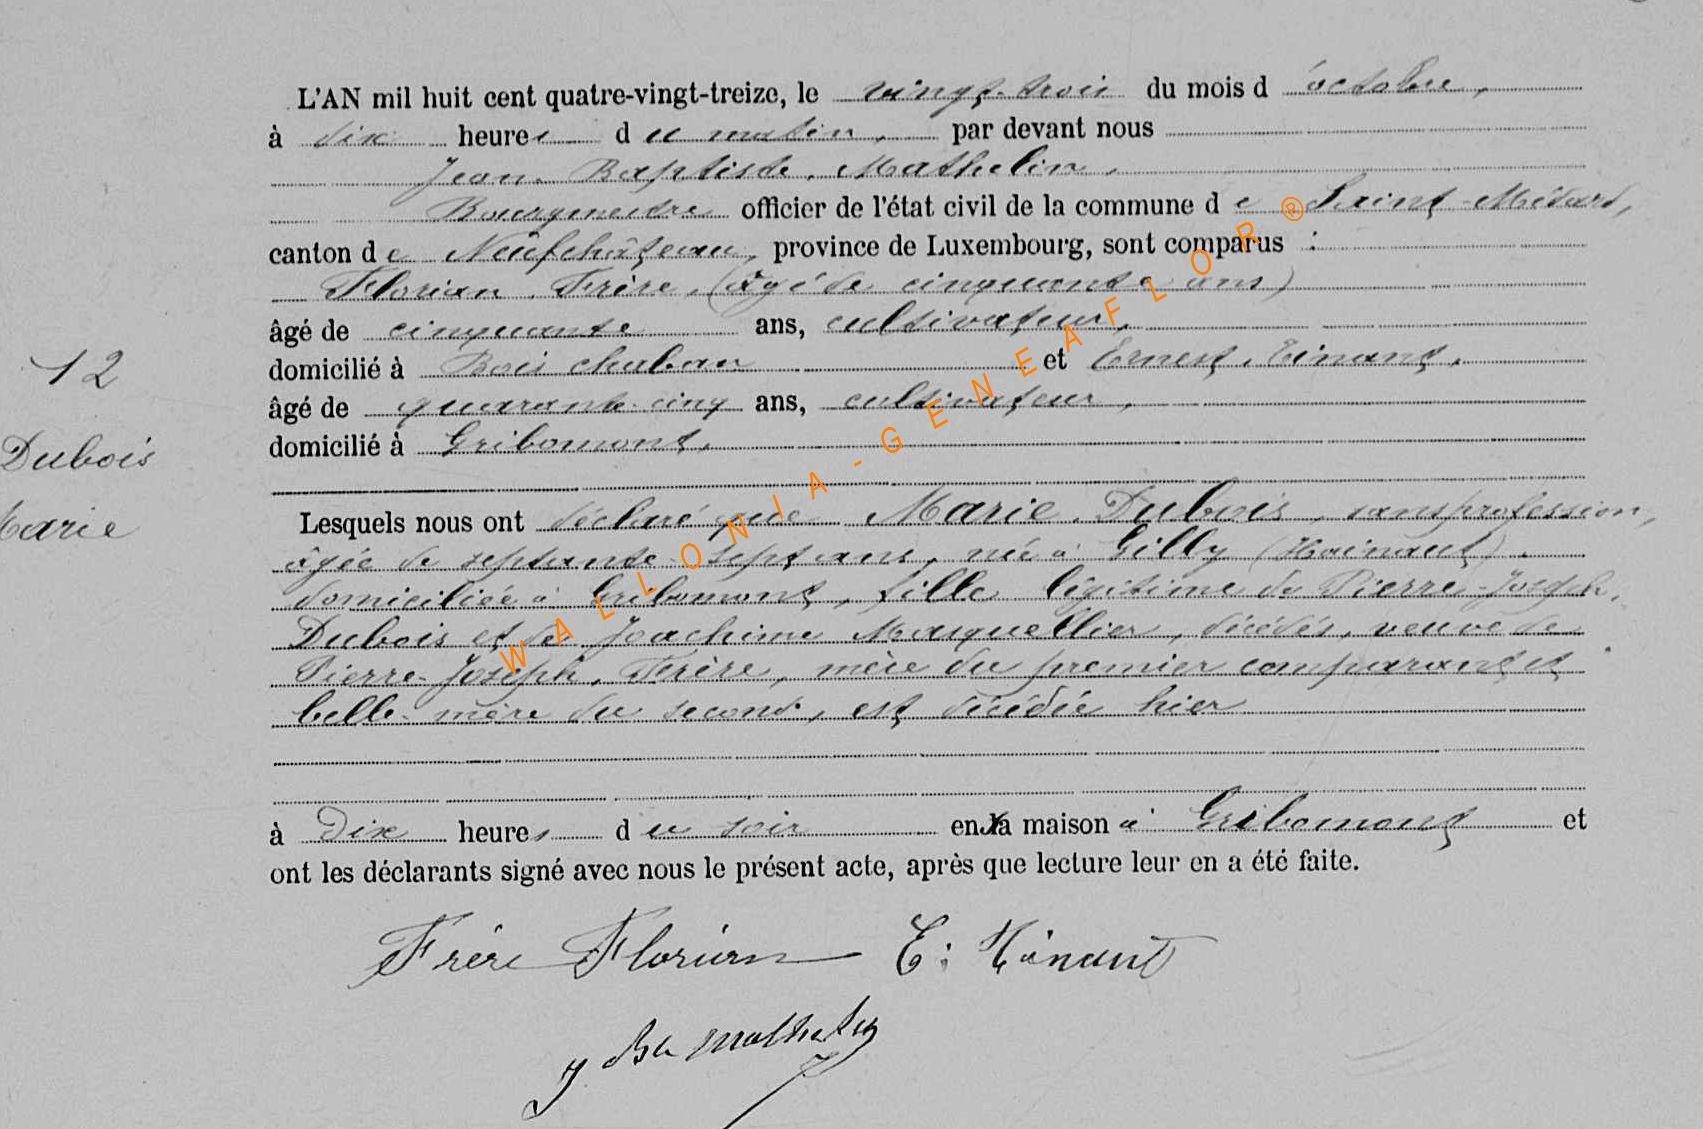 L'AN mil huit cent quatre-vingt-treize, le vingt-trois du mois d'octobre,
à dix heures du matin, par devant nous
Jean-Baptiste Mathelin,
Bourgmestre officier de l'état civil de la commune de Saint-Médard,
canton de Neufchâteau, province de Luxembourg, sont comparus :
Florian Frère, (âgé de cinquante ans)
âgé de cinquante ans, cultivateur,
domicilié à Bois chaban et Ernest Tinant,
12
âgé de quarante-cinq ans, cultivateur,
domicilié à Gribomont,
Dubois
Marie
Lesquels nous ont déclaré que Marie Dubois, sans profession,
âgée de septante-sept ans, née à Gilly (Hainaut),
domiciliée à Gribomont, fille légitime de Pierre-Joseph
Dubois et de Joachime Masquellier, décédés, veuve de
Pierre-Joseph Frère, mère du premier comparant et
belle-mère du second, est décédée hier
à Dix heures du soir en sa maison à Gribomont et
ont les déclarants signé avec nous le présent acte, après que lecture leur en a été faite.
Frère Florian E. Tinant
J Bte Mathelin
WALLONIA-GENEAFLOR®